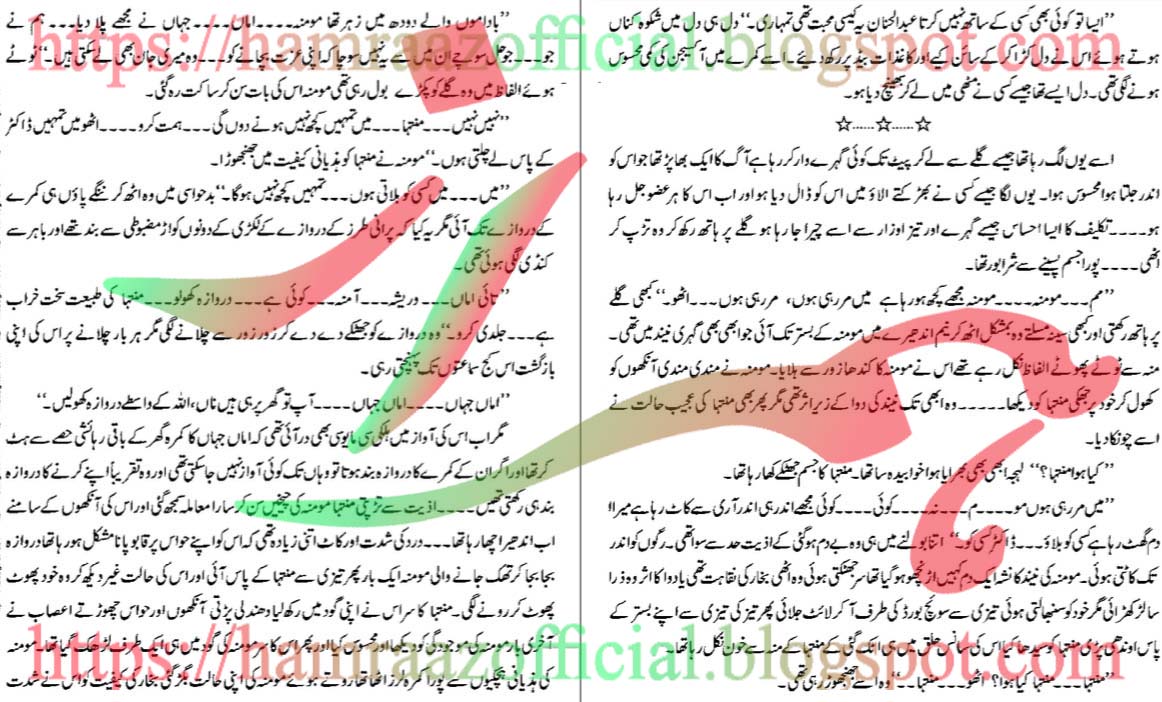 "ایسا تو کوئی بھی کسی کے ساتھ نہیں کرتا عبدالحنان یہ کیسی محبت تھی تمہاری۔" دل ہی دل میں شکوہ کناں
ہوتے ہوئے اس نے دل کڑا کر کے سائن کیے اور کاغذات بیڈ پر رکھ دیئے۔ اسے کمرے میں آکسیجن کی کمی محسوس
ہونے لگی تھی۔ دل ایسے تھا جیسے کسی نے مٹھی میں لے کر بھینچ دیا ہو۔
☆......☆......☆
اسے یوں لگ رہا تھا جیسے گلے سے لے کر پیٹ تک کوئی گہرے وار کر رہا ہے آگ کا ایک بھانپڑ تھا جو اس کو
اندر جلتا ہوا محسوس ہوا۔ یوں لگا جیسے کسی نے بھڑکتے الاؤ میں اس کو ڈال دیا ہو اور اب اس کا ہر عضو جل رہا
ہو۔۔۔۔ تکلیف کا ایسا احساس جیسے گہرے اور تیز اوزار سے اسے چیرا جا رہا ہو گلے پر ہاتھ رکھ کر وہ تڑپ کر
اٹھی۔۔۔۔ پورا جسم پسینے سے شرابور تھا۔
"مم۔۔۔ مومنہ۔۔۔۔ مومنہ مجھے کچھ ہو رہا ہے میں مر رہی ہوں، مر رہی ہوں۔۔۔ اٹھو۔" کبھی گلے
پر ہاتھ رکھتی اور کبھی سینہ مسلتے وہ بمشکل اٹھ کر نیم اندھیرے میں مومنہ کے بستر تک آئی جو ابھی بھی گہری نیند میں تھی۔
منہ سے ٹوٹے پھوٹے الفاظ نکل رہے تھے اس نے مومنہ کا کندھا زور سے ہلایا۔ مومنہ نے مندی مندی آنکھوں کو
کھول کر خود پر جھکی منتہا کو دیکھا۔۔۔۔۔ وہ ابھی تک نیند کی دوا کے زیر اثر تھی مگر پھر بھی منتہا کی عجیب حالت نے
اسے چونکا دیا۔
"کیا ہوا منتہا؟" لہجہ ابھی بھی بھرایا ہوا خوابیدہ سا تھا۔ منتہا کا جسم جھٹکے کھا رہا تھا۔
"میں مر رہی ہوں مو۔۔۔۔ م۔۔۔۔ نہ۔۔۔۔ کوئی۔۔۔۔ کوئی مجھے اندر ہی اندر آری سے کاٹ رہا ہے میرا
دم گھٹ رہا ہے کسی کو بلاؤ۔۔۔ ڈاکٹر کسی کو۔" اتنا بولنے میں ہی وہ بے دم ہو گئی کے اذیت حد سے سوا تھی۔ رگوں کو اندر
تک کاٹتی ہوئی۔ مومنہ کی نیند کا نشہ ایک دم کہیں اڑنچھو ہو گیا تھا سر جھٹکتی ہوئی وہ اٹھی بخار کی نقاہت تھی یا دوا کا اثر وہ ذرا
سا لڑکھڑائی مگر خود کو سنبھالتی ہوئی تیزی سے سوئچ بورڈ کی طرف آ کر لائٹ جلائی پھر تیز کی تیزی سے اپنے بستر کے
پاس اوندھی پڑی منتہا کو سیدھا کیا اس کی سانس حلق میں ہی اٹک گئی کے منتہا کے منہ سے خون نکل رہا تھا۔
"منتہا۔۔۔ منتہا کیا ہوا؟ اٹھو۔۔۔ منتہا۔۔" وہ اسے جھنجھوڑ رہی تھی۔
"باداموں والے دودھ میں زہر تھا مومنہ۔۔۔ اماں۔۔۔۔ جہاں نے مجھے پلا دیا۔۔۔ ہم نے
جو۔۔۔ جو عمل سوچے ان میں سے یہ نہیں سوچا کہ اپنی عزت بچانے کو۔۔۔ وہ میری جان بھی لے سکتی ہیں۔" ٹوٹے
ہوئے الفاظ میں وہ گلے کو پکڑے بول رہی تھی مومنہ اس کی بات سن کر ساکت رہ گئی۔
"نہیں نہیں۔۔۔ منتہا۔۔۔ میں تمہیں کچھ نہیں ہونے دوں گی۔۔۔ ہمت کرو۔۔۔۔ اٹھو میں تمہیں ڈاکٹر
کے پاس لے چلتی ہوں۔" مومنہ نے منتہا کو ہذیانی کیفیت میں جھنجھوڑا۔
"میں۔۔۔۔ میں کسی کو بلاتی ہوں۔۔۔۔ تمہیں کچھ نہیں ہوگا۔" بدحواسی میں وہ اٹھ کر ننگے پاؤں ہی کمرے
کے دروازے تک آئی مگر یہ کیا کہ پرانی طرز کے دروازے کے لکڑی کے دونوں کواڑ مضبوطی سے بند تھے اور باہر سے
کنڈی لگی ہوئی تھی۔
"تائی اماں۔۔۔ وریشہ۔۔۔ آمنہ۔۔۔ کوئی ہے۔۔۔ دروازہ کھولو۔۔۔۔ منتہا کی طبیعت سخت خراب
ہے۔۔۔ جلدی کرو۔" وہ دروازے کو جھٹکے دے دے کر زور زور سے چلانے لگی مگر ہر بار چلانے پر اس کی اپنی
بازگشت اس کی سماعتوں تک پہنچتی رہی۔
"اماں جہاں۔۔۔۔ اماں جہاں۔۔۔۔ آپ تو گھر پر ہی ہیں ناں، اللہ کے واسطے دروازہ کھولیں۔"
مگر اب اس کی آواز میں ہلکی سی مایوسی بھی در آئی تھی کہ اماں جہاں کا کمرہ گھر کے باقی رہائشی حصے سے ہٹ
کر تھا اور اگر ان کے کمرے کا دروازہ بند ہوتا تو وہاں تک کوئی آواز نہیں جا سکتی تھی اور وہ تقریباً اپنے کمرے کا دروازہ
بند ہی رکھتی تھیں۔۔۔۔ اذیت سے تڑپتی منتہا مومنہ کی چیخیں سن کر سارا معاملہ سمجھ گئی اور اس کی آنکھوں کے سامنے
اب اندھیرا چھا رہا تھا۔۔۔ درد کی شدت اور کاٹ اتنی زیادہ تھی کہ اس کو اپنے حواس پر قابو پانا مشکل ہو رہا تھا دروازہ
بجا بجا کر تھک جانے والی مومنہ ایک بار پھر تیزی سے منتہا کے پاس آئی اور اس کی حالت غیر دیکھ کر وہ خود پھوٹ
پھوٹ کر رونے لگی۔ منتہا کا سر اس نے اپنی گود میں رکھ لیا دھندلی پڑتی آنکھوں اور حواس چھوڑتے اعصاب نے
آخری بار مومنہ کی موجودگی کو دیکھا اور محسوس کیا اور پھر اس کا سر مومنہ کی گود میں ہی ایک طرف لڑھک گیا تھا۔ مومنہ
کی ہذیانی ہچکیوں سے پورا کمرہ لرز اٹھا تھا روتے ہوئے مومنہ کی اپنی حالت بگڑ گئی بخار کی کیفیت کو اس نے شدت
https://hamraazofficial.blogspot.com
https://hamraazofficial.blogspot.com